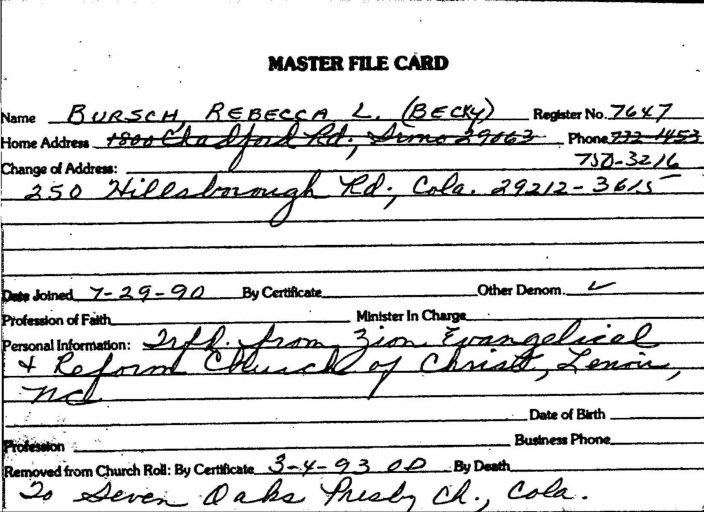 MASTER FILE CARD
Name BURSCH, REBECCA L. (BECKY) Register No. 7647
Home Address 1800 Chadford Rd., Irmo 29063 Phone 772-1453
Change of Address: 750-3216
250 Hillsborough Rd., Cola. 29212-3615
Date Joined 7-29-90 By Certificate Other Denom. ✓
Profession of Faith Minister In Charge
Personal Information: Trfd. from Zion Evangelical
& Reform Church of Christ, Lenoir,
NC
Date of Birth
Profession Business Phone
Removed from Church Roll: By Certificate 3-4-93 OD By Death
To Seven Oaks Presby Ch., Cola.